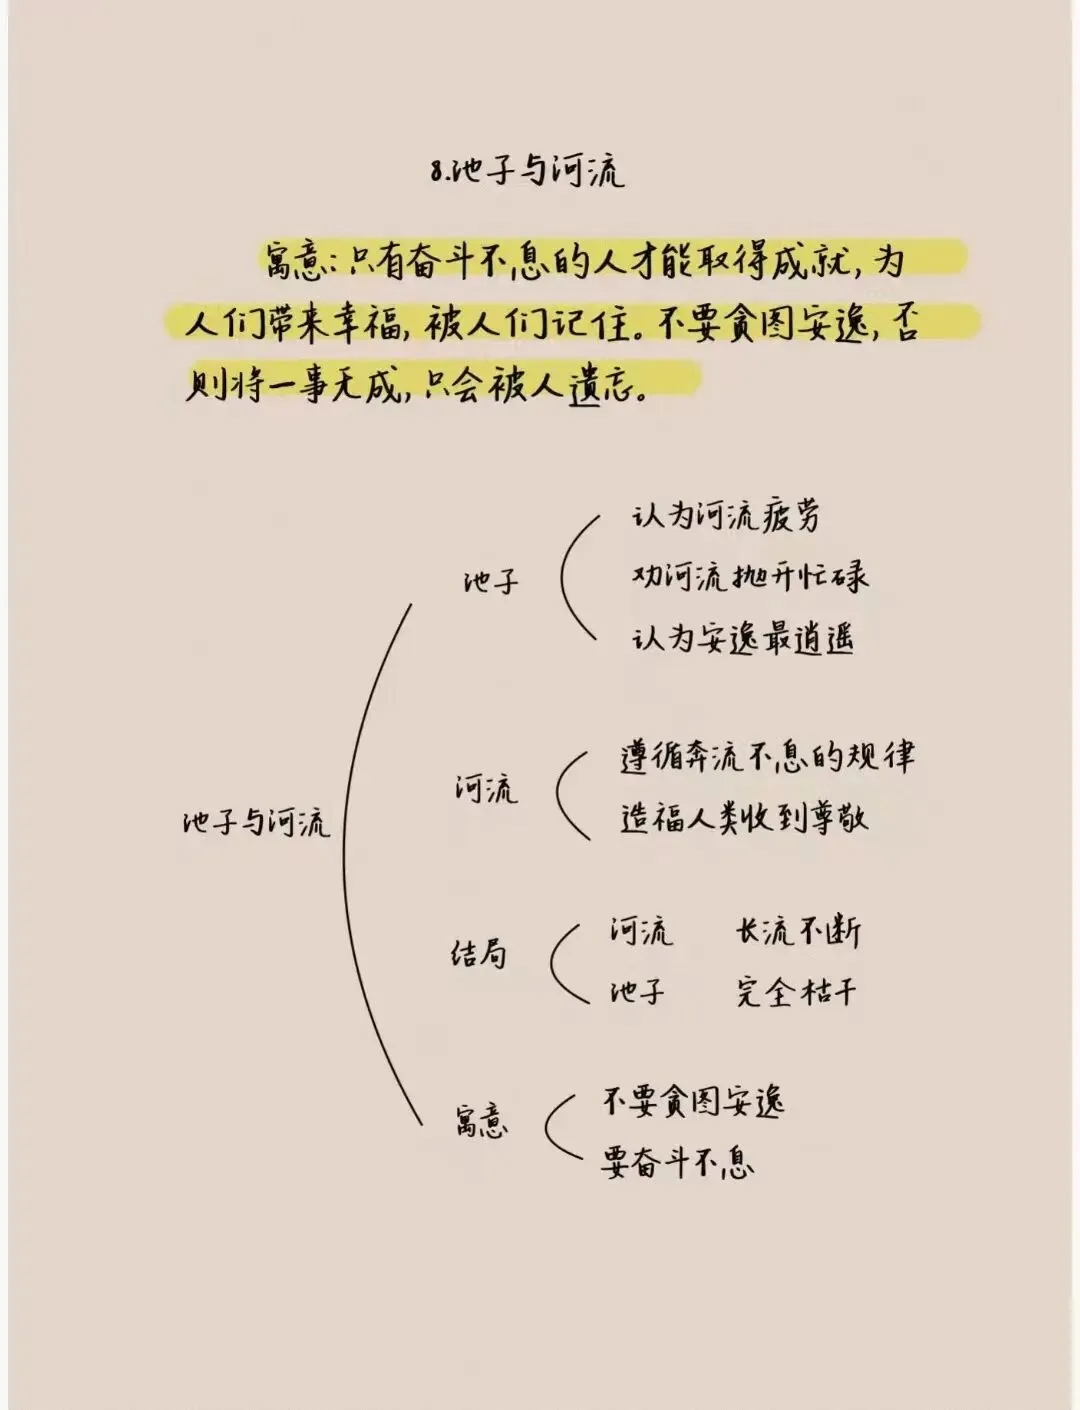 8.池子与河流
寓意:只有奋斗不息的人才能取得成就,为
人们带来幸福,被人们记住。不要贪图安逸,否
则将一事无成,只会被人遗忘。
认为河流疲劳
池子
劝河流抛开忙碌
认为安逸最逍遥
遵循奔流不息的规律
河流
造福人类收到尊敬
池子与河流
河流 长流不断
结局
池子 完全枯干
不要贪图安逸
寓意
要奋斗不息